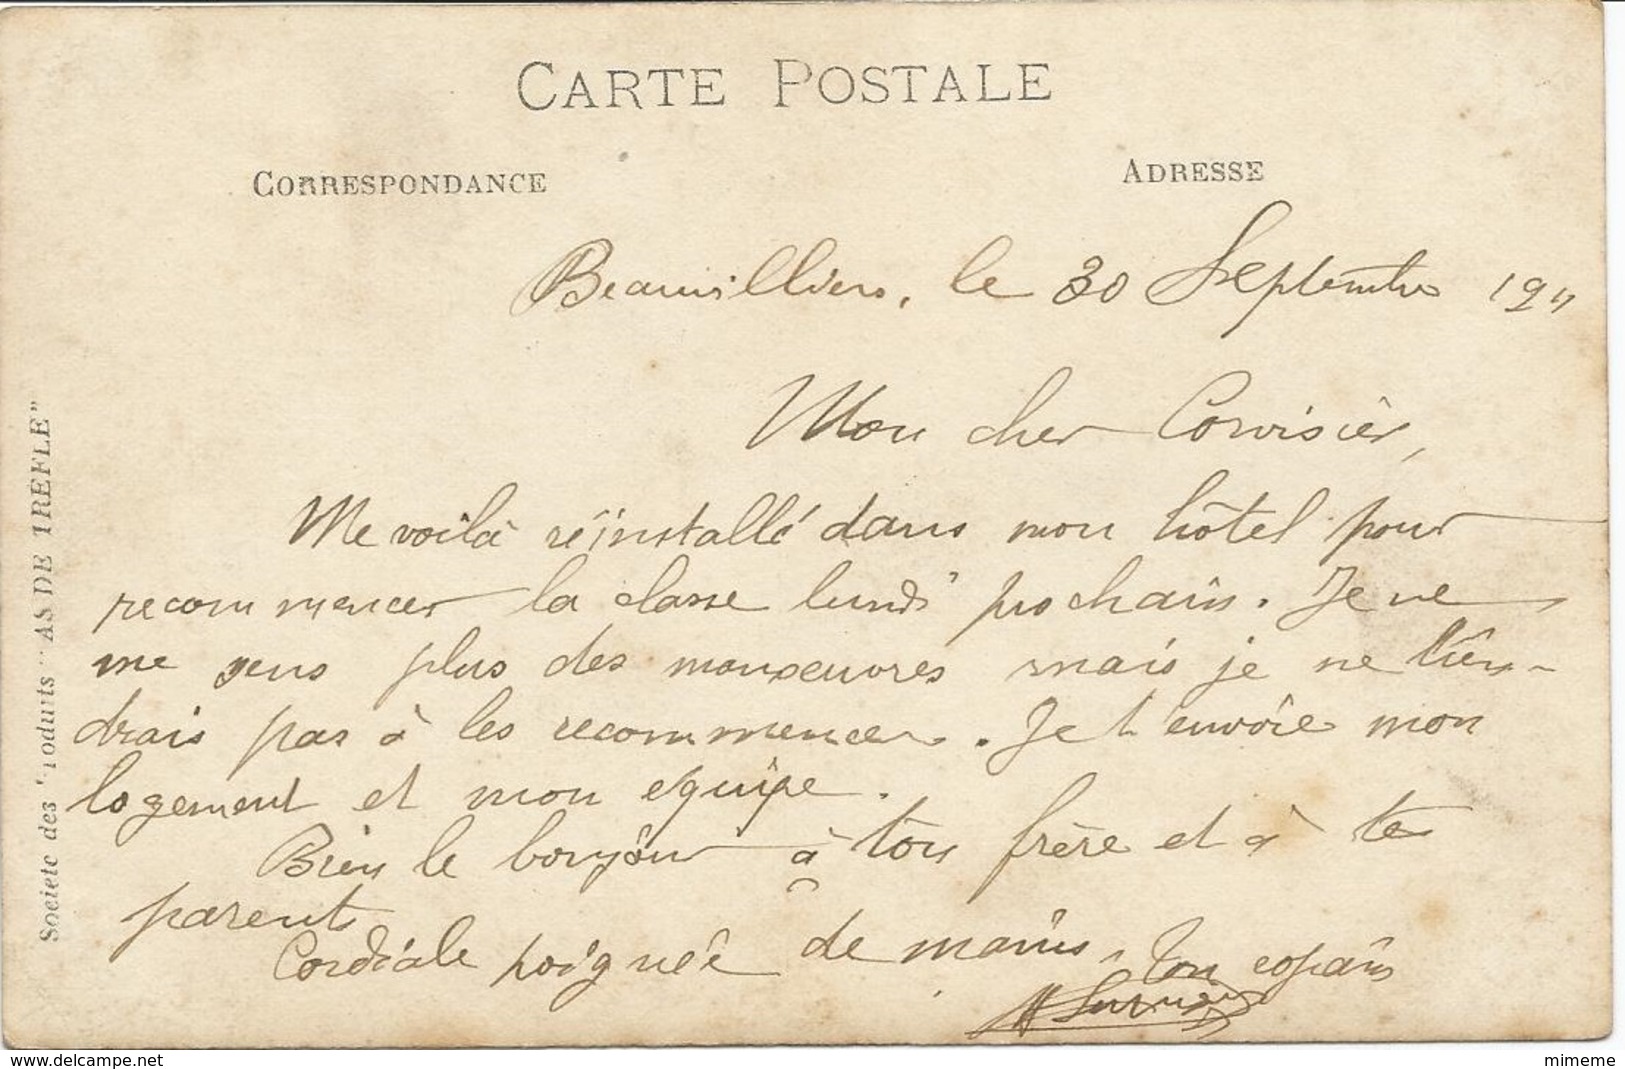 CARTE POSTALE
CORRESPONDANCE
ADRESSE
Beauvilliers, le 30 Septembre 1911
Mon cher Corvisier,
Me voilà réinstallé dans mon hôtel pour
recommencer la classe lundi prochain. Je ne
me sens plus des manoeuvres mais je ne tien-
drais pas à les recommencer. Je t'envoie mon
logement et mon équipe.
Bien le bonjour à ton frère et à tes
parents
Cordiale poignée de mains. Ton copain
Societe des "Produits "AS DE TREFLE"
www.delcampe.net
mimeme